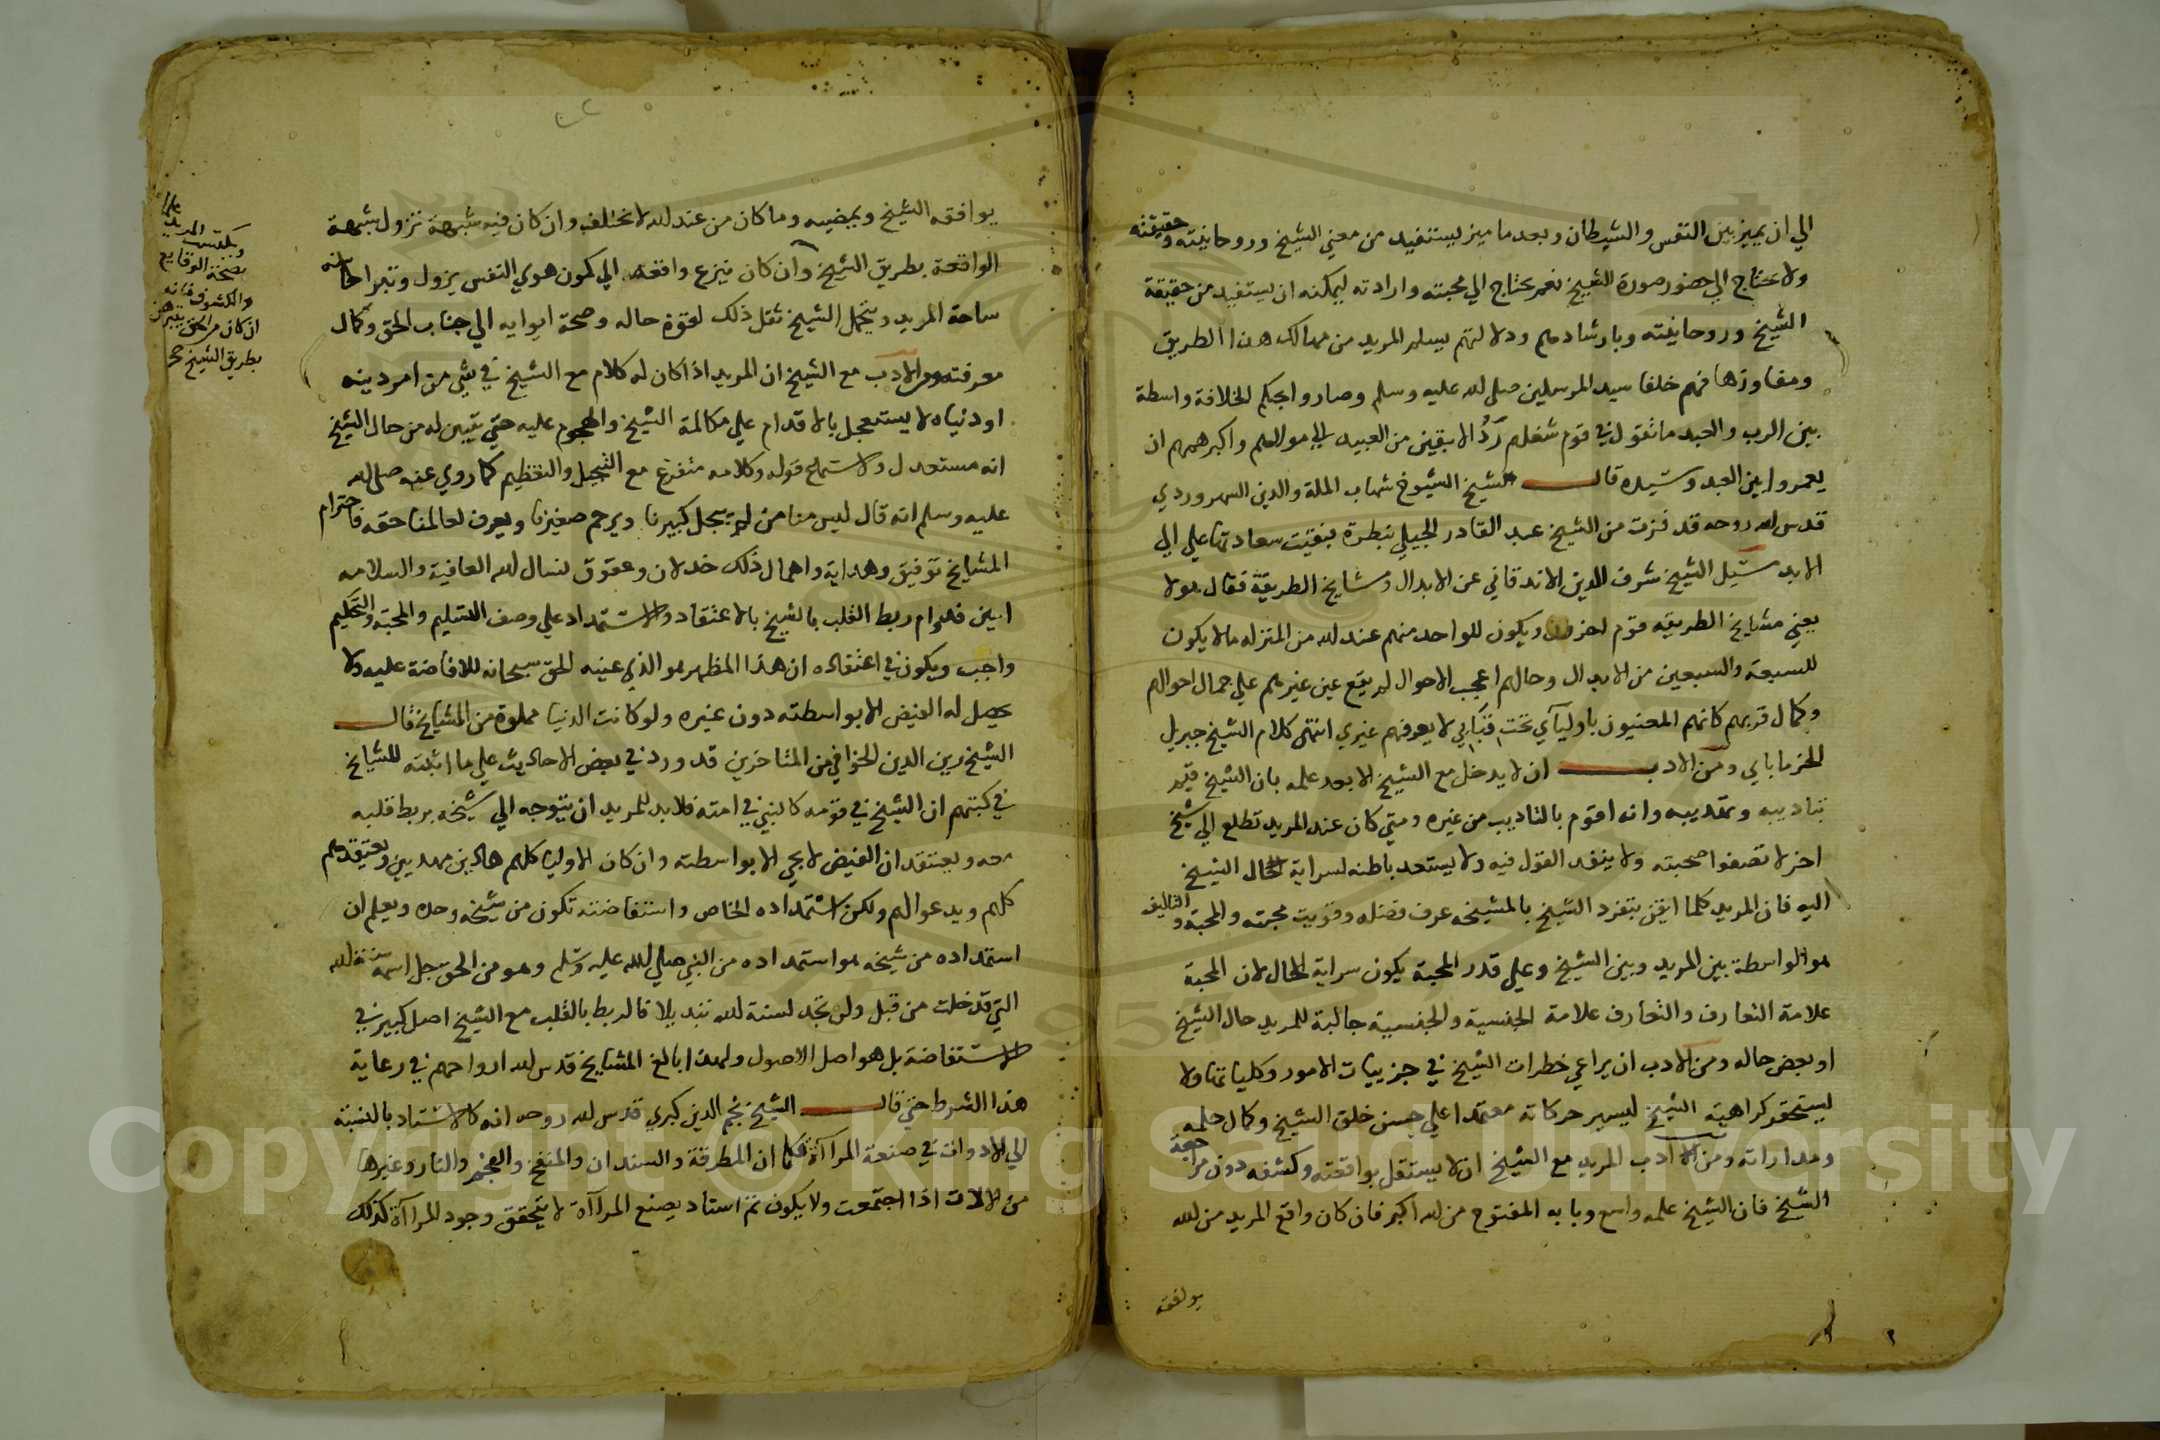 الي ان يميز بين النفس والشيطان وبعد ما ميز يستفيد من معني الشيخ وروحانيته وحقيقته
ولا يحتاج الي حضور صورة الشيخ نعم يحتاج الي محبته وارادته ليمكنه ان يستفيد من حقيقة
الشيخ وروحانيته وبارشادهم ودلالتهم يسلم المريد من مهالك هذا الطريق
ومفاوزها فهم خلفا سيد المرسلين صلي الله عليه وسلم وصاروا بحكم الخلافة واسطة
بين الرب والعبد ما تقول في قوم شغلهم رد الابقين من العبيد الي موالهم واكبر هممهم ان
يعمروا بين العبد وسيده قال الشيخ الشيوخ شهاب الملة والدين السهروردي
قدس الله روحه قد فزت من الشيخ عبد القادر الجيلي بنظرة فبقيت سعادتها علي الي
الابد سئيل الشيخ شرف الدين الاندقاني عن الابدال ومشايخ الطريقة فقال هولا
يعني مشايخ الطريقه قوم اخرون ويكون للواحد منهم عند الله من المنزله ما لا يكون
للسبعة والسبعين من الابدال وحالهم اعجب الاحوال لم يقع عين غيرهم علي جمال احوالهم
وكمال قربهم كانهم المعنيون باوليآي تحت قبابي لا يعرفهم غيري انتهى كلام الشيخ جبريل
الخرماباي ومن الادب ان لا يدخل مع الشيخ الا بعد علمه بان الشيخ قيم
بتاديبه وتهذيبه وانه اقوم بالتاديب من غيره ومتي كان عند المريد تطلع الي شيخ
اخر لا تصفوا صحبته ولا ينفد القول فيه ولا يستعد باطنه لسراية الحال الشيخ
اليه فان المريد كلما ايقن بتفرد الشيخ بالمشيخه عرف فضله وقويت محبته والمحبة والتاليف
هو الواسطة بين المريد وبين الشيخ وعلي قدر المحبة يكون سراية الحال لان المحبة
علامة التعارف والتعارف علامة الجنسية والجنسية جالبة للمريد حال الشيخ
او بعض حاله ومن الادب ان يراعي خطرات الشيخ في جزييات الامور وكلياتها ولا
يستحقر كراهية الشيخ ليسير حركاته معتمدا علي حسن خلق الشيخ وكمال حلمه
ومداراته ومن الادب المريد مع الشيخ ان لا يستقل بواقعته وكشفه دون مراجعة
الشيخ فان الشيخ علمه واسع وبابه المفتوح من الله اكبر فان كان واقع المريد من الله
يوافقه
يوافقه الشيخ ويمضيه وما كان من عند الله لا يختلف وان كان فيه شبهة تزول شبهة
الواقعة بطريق الشيخ وان كان ينزع واقعته الي كمون هوي النفس يزول وتبرا ساحته
ساحة المريد ويتحمل الشيخ ثقل ذلك لقوة حاله وصحة ايوايه الي جناب الحق وكمال
معرفته ومن الادب مع الشيخ ان المريد اذا كان له كلام مع الشيخ في شي من امر دينه
او دنياه لا يستعجل بالاقدام علي مكالمة الشيخ والهجوم عليه حتي يتبين له من حال الشيخ
انه مستعد له ولاستماع قوله وكلامه متفرغ مع التبجيل والتعظيم كما روي عنه صلي الله
عليه وسلم انه قال ليس منا من لم يبجل كبيرنا ويرحم صغيرنا ويعرف لعالمنا حقه فاحترام
المشايخ توفيق وهداية واهمال ذلك خذلان وعقوق نسال الله العافية والسلامه
امين فدوام ربط القلب بالشيخ بالاعتقاد والاستمداد علي وصف التسليم والمحبة والتحكيم
واجب ويكون في اعتقاده ان هذا المظهر هو الذي عينه الحق سبحانه للافاضة عليه ولا
يحصل له الفيض الا بواسطته دون غيره ولو كانت الدنيا مملوة من المشايخ قال
الشيخ زين الدين الخوافي من المتاخرين قد ورد في بعض الاحاديث علي ما اثبته المشايخ
في كتبهم ان الشيخ في قومه كالنبي في امته فلا بد للمريد ان يتوجه الي شيخه بربط قلبه
معه ويعتقد ان الفيض لا يجي الا بواسطته وان كان الاوليا كلهم هادين مهديين ويعتقدهم
كلهم ويدعوا لهم ولكن استمداده الخاص واستفاضته تكون من شيخه وحده ويعلم ان
استمداده من شيخه هو استمداده من النبي صلي الله عليه وسلم وهو من الحق جل اسمه سنة الله
التي قد خلت من قبل ولن تجد لسنة الله تبديلا فالربط بالقلب مع الشيخ اصل كبير في
الاستفاضة بل هو اصل الاصول ولهذا بالغ المشايخ قدس الله ارواحهم في رعاية
هذا الشرط حتي قال الشيخ نجم الدين كبري قدس الله روحه انه كالاستاد بالنسبة
الي الادوات في صنعة المراآة فكما ان المطرقة والسندان والمنفخ والفحم والنار وغيرها
من الالات اذا اجتمعت ولا يكون ثم استاد يصنع المراآة لا يتحقق وجود المراآة كذلك
بصحة الوقايع
والكشوف فانه
ان كان من الحق
بطريق الشيخ صح
Copyright © King Saud University
1957